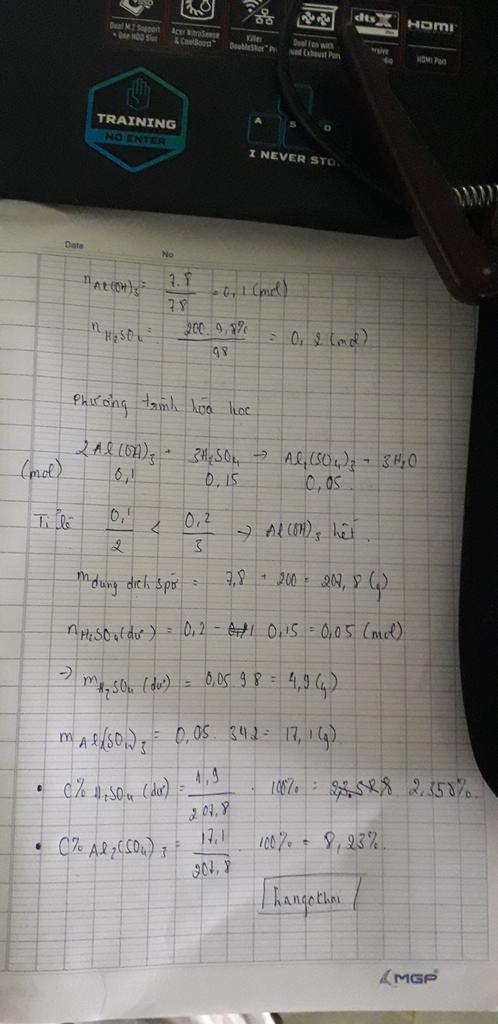 Dual M.2 Support
+ One HDD Slot
Acer NitroSense
& CoolBoost™
Killer
DoubleShot™ Pro
Dual Fan with
Quad Exhaust Port
dts X
HDMI
HDMI Port
TRAINING
NO ENTER
A S D
I NEVER STO
Date No
nAl(OH)3 = 7.8/78 = 0,1 (mol)
nH2SO4 = 200.9,8%/98 = 0,2 (mol)
Phương trình hóa học
2Al(OH)3 + 3H2SO4 → Al2(SO4)3 + 3H2O
(mol) 0,1 0,15 0,05
Tỉ lệ 0,1/2 < 0,2/3 → Al(OH)3 hết.
mdung dịch spứ = 7,8 + 200 = 207,8 (g)
nH2SO4 (dư) = 0,2 - 0,15 = 0,05 (mol)
→ mH2SO4 (dư) = 0,05.98 = 4,9 (g)
mAl2(SO4)3 = 0,05.342 = 17,1 (g)
• C% H2SO4 (dư) = 4,9/207,8 . 100% = 2,358%.
• C% Al2(SO4)3 = 17,1/207,8 . 100% = 8,23%.
hangokhoi
MGP